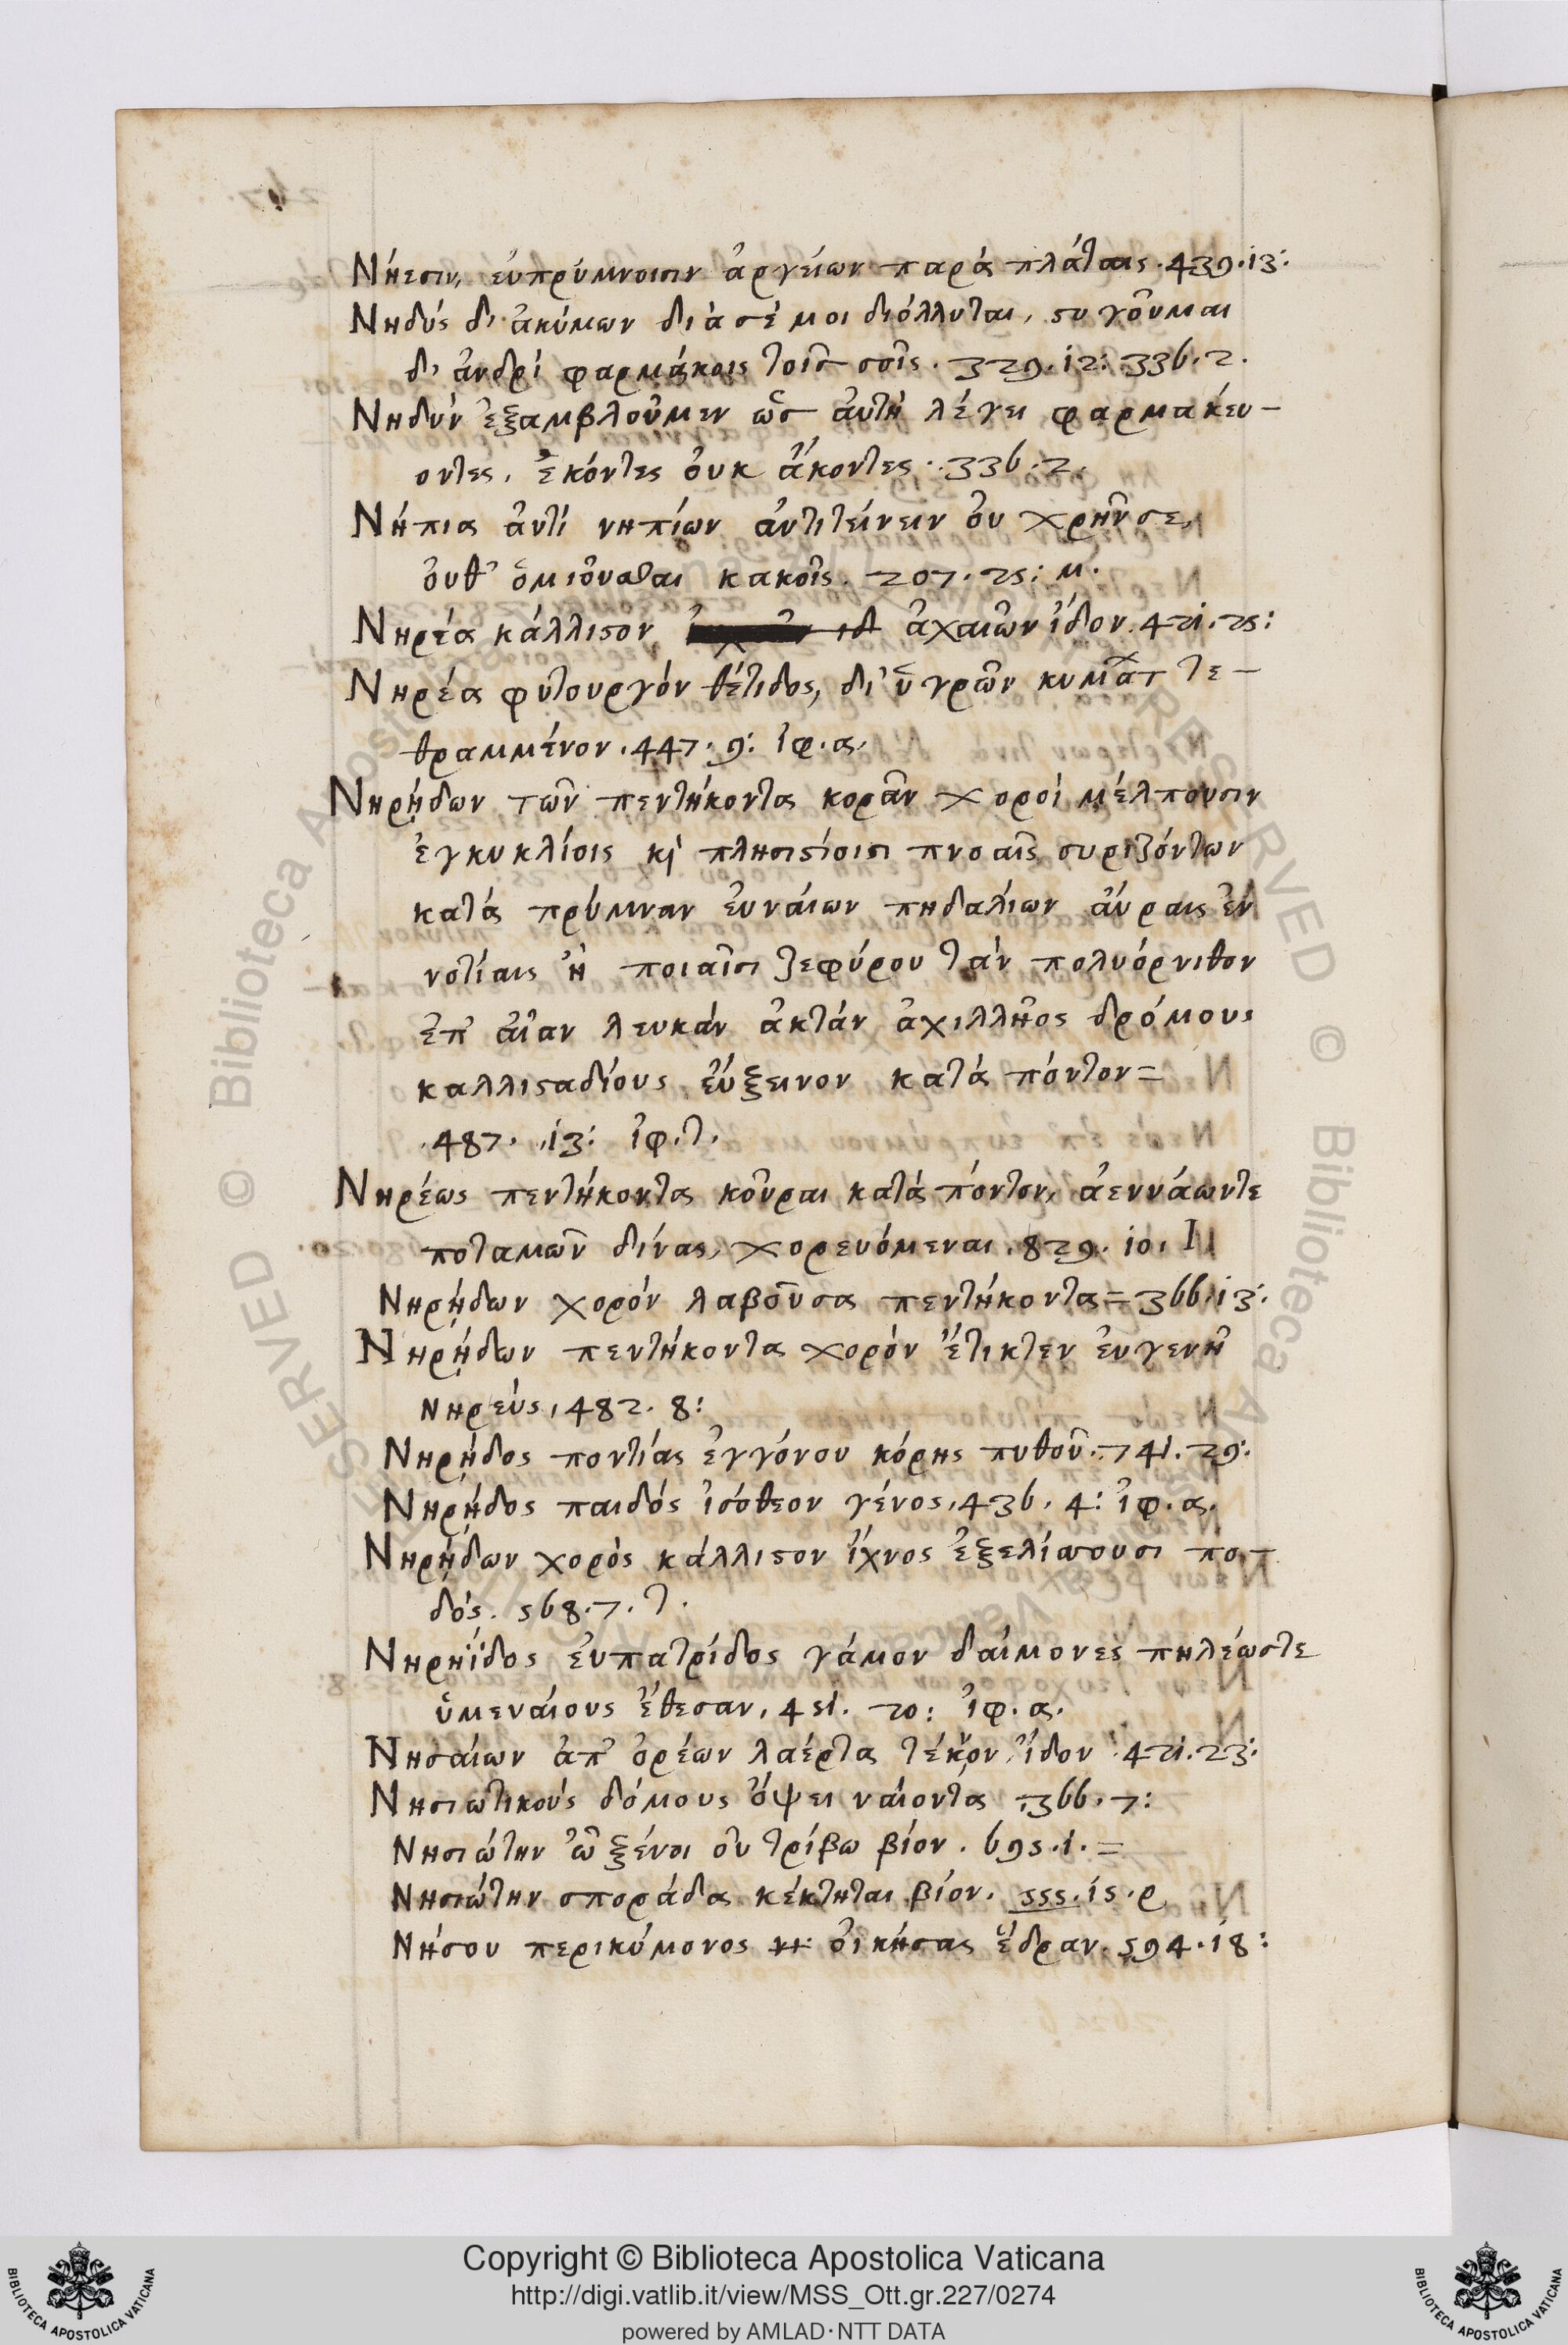 Νήεσιν, εὐπρύμνοισιν ἀργείων παρὰ πλάταις. 439. 13:
Νηδύς δι ἀκύμων διὰ σέ μοι διόλλυται, ϛυγοῦμαι
δι ἀνδρί φαρμάκοις τοῖσ σοῖς. 329. 12: 336. 2.
Νηδύν ἐξαμβλοῦμεν ὡς αὐτή λέγει φαρμακεύ-
οντες. ἑκόντες οὐκ ἄκοντες. 336. 2.
Νήπια ἀντί νηπίων ἀντιτείνειν οὐ χρῆν σε,
οὐθ' ὁμιοῦσται κακοῖς. 207. 25: μ.
Νηρέα κάλλιϛον ἀχαιῶν ἴδον. 421. 25:
Νηρέα φυτουργόν θέτιδος, δι' ὑγρῶν κυμάτ τε-
θραμμένον. 447. 9: ἰφ. α.
Νηρῄδων τῶν πεντήκοντα κορᾶν χοροί μέλπουσιν
ἐγκυκλίοις κὶ πλησιϛίοισι πνοαῖς συριζόντων
κατά πρύμναν εὐναίων πηδαλίων αὔραις ἐν
νοτίαις ἢ ποιαῖσι ζεφύρου τάν πολυόρνιθον
ἐπ' αἶαν λευκάν ἀκτάν ἀχιλλῆος δρόμους
καλλιϛαδίους εὔξεινον κατά πόντον=
487. 13: ἰφ. τ.
Νηρέως πεντήκοντα κοῦραι κατά πόντον, ἀεννάωντε
ποταμῶν δίνας, χορευόμεναι. 829. 10. Ι
Νηρῄδων χορόν λαβοῦσα πεντήκοντα= 366. 13:
Νηρῄδων πεντήκοντα χορόν ἔτικτεν εὐγενῆ
νηρεύς, 482. 8:
Νηρῄδος ποντίας ἐγγόνου κόρης πυθοῦ. 741. 29:
Νηρῄδος παιδός ἰσόθεον γένος. 436. 4: ἰφ. α.
Νηρῄδων χορός κάλλιϛον ἴχνος ἐξελίσσουσι πο-
δός. 568. 7. τ.
Νηρηίδος εὐπατρίδος γάμον δαίμονες πηλέωστε
ὑμεναίους ἔθεσαν, 451. 20: ἰφ. α.
Νησαίων ἀπ' ὀρέων λαέρτα τέκον ἴδον 421. 23:
Νησιωτικούς δόμους ὄψει ναίοντα 366. 7:
Νησιώτην ὦ ξένοι οὐ τρίβω βίον. 695. 1. =
Νησιώτην σποράδα κέκτηται βίον. 555. 15. ρ
Νήσου περικύμονος οἰκήσας ἕδραν. 594. 18:
Copyright © Biblioteca Apostolica Vaticana
http://digi.vatlib.it/view/MSS_Ott.gr.227/0274
powered by AMLAD·NTT DATA